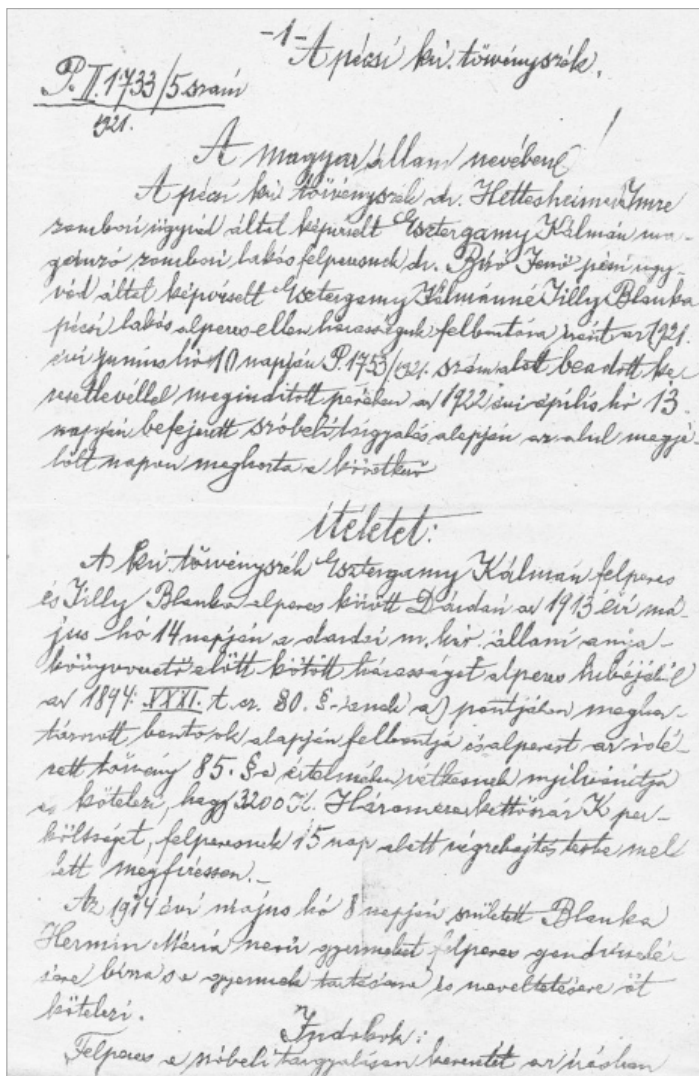 -1-
A pécsi kir. törvényszék.
P. II. 1733/5 szám
1921.
A magyar állam nevében!
A pécsi kir. törvényszék dr. Hettesheimer Imre
zombori ügyvéd által képviselt Esztergamy Kálmán ma-
gánzó zombori lakós felperesnek dr. Biró Jenő pécsi ügy-
véd által képviselt Esztergamy Kálmánné Tilly Blanka
pécsi lakós alperes ellen házasságuk felbontása iránt az 1921.
évi junius hó 10 napján P. 1753/1921. szám alatt beadott ke-
resetlevéllel meginditott perében az 1922 évi április hó 13.
napján befejezett szóbeli tárgyalás alapján az alul megje-
lölt napon meghozta a következő
itéletet:
A kir. törvényszék Esztergamy Kálmán felperes
és Tilly Blanka alperes között Dárdán az 1913 évi má-
jus hó 14 napján a dárdai m. kir. állami anya-
könyvvezető előtt kötött házasságot alperes hibájából
az 1894: XXXI. t. cz. 80. §-ának a) pontjában megha-
tározott bontó ok alapján felbontja és alperest az idé-
zett törvény 85. §-a értelmében vétkesnek nyilvánitja
és kötelezi, hogy 3200 K. Háromezerkettőszáz K per-
költséget, felperesnek 15 nap alatt végrehajtás terhe mel
lett megfizessen.-
Az 1914 évi május hó 8 napján született Blanka
Hermin Mária nevü gyermeket felperes gondviselé-
sére bizza s a gyermek tartására és neveltetésére őt
kötelezi.
Indokok:
Felperes a szóbeli tárgyaláson keresetét az irásban